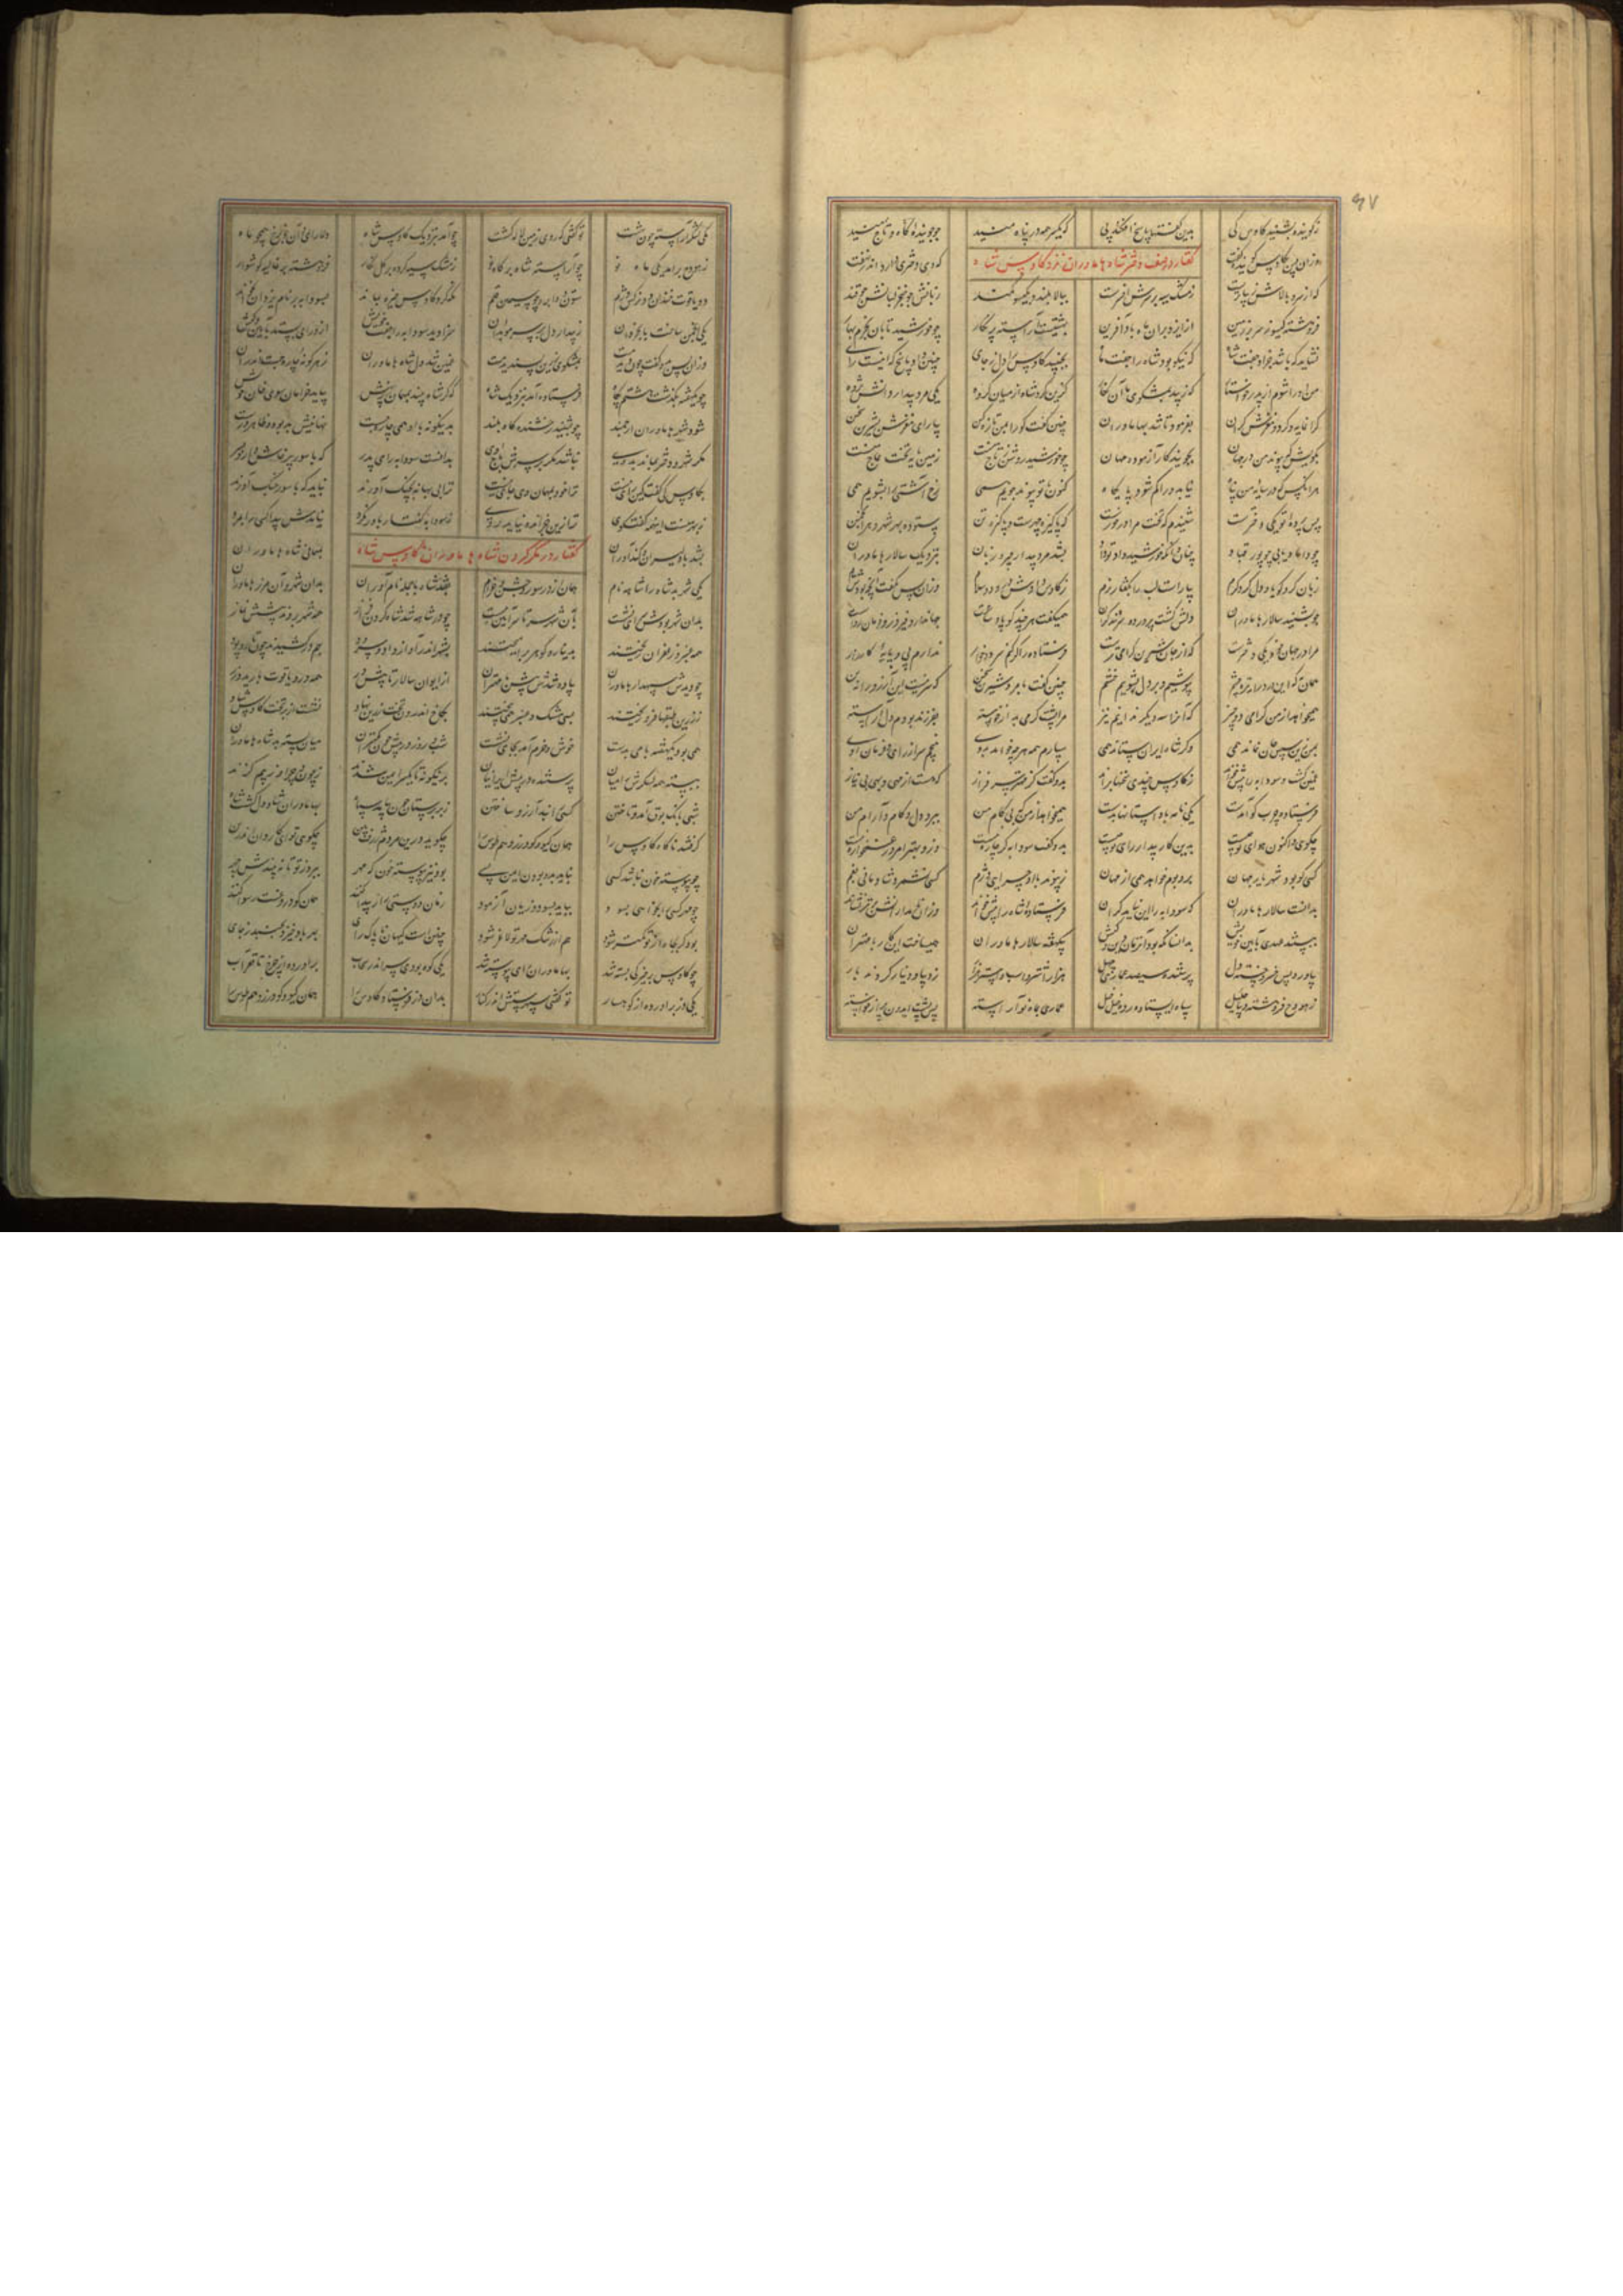 ۶۷
ز گوینده بشنید کاوس کی بدین گفتها پاسخ افکند پی که یکسر همه در پناه منید جو جوینده گاه و تاج منید
گفتار در وصف دختر شاه هاماوران نزد کاوس شاه
وزان پس بکاوس گوینده گفت که وی دختری دارد اندر نهفت
که از سرو بالاش زیباترست ز مشک سیه بر سرش افسرست ببالا بلند و بگیسو کمند زبانش چو خنجر لبانش چو قند
بهشتیست آراسته پر نگار چو خورشید تابان بخرم بهار
نشاید که باشد جز او جفت شاه که نیکو بود شاه را جفت ماه بجنبید کاوس را دل ز جای چنین داد پاسخ که اینست رای
من او را شوم از پدر خواستار که زیبد بمشکوی ما آن نگار گزین کرد شاه از میان گروه یکی مرد بیدار دانش پژوه
گرانمایه و گرد و مغزش گران بفرمود تا شد بهاماوران چنین گفت کو را بمن تازه کن بیارای مغزش بشیرین سخن
بگویش که پیوند من در جهان بجویند کار آزموده مهان چو خورشید روشن ز تاج منست زمین پایه تخت عاج منست
هر آنکس که در سایه من پناه نیابد ورا کم شود پایگاه کنون با تو پیوند جویم همی رخ آشتی را بشویم همی
پس پرده تو یکی دخترست شنیدم که تخت مرا درخورست که پاکیزه چهرست و پاکیزه تن ستوده بهر شهر و هر انجمن
چو داماد یابی چو پور قباد چنان دان که خورشید داد تو داد بشد مرد بیدار چیره زبان بنزدیک سالار هاماوران
زبان کرد گویا و دل کرد گرم بیاراست لب را بگفتار نرم ز کاوس دادش درود و سلام وزان پس بگفت آنچه بود از پیام
چو بشنید سالار هاماوران دلش گشت پر درد و سر شد گران همیگفت هر چند کو پادشاست جهاندار و فیروز و فرمان رواست
مرا در جهان خود یکی دخترست که از جان شیرین گرامی ترست فرستاده را گر کنم سرد و خوار ندارم پی و پایه کارزار
همان به که این درد را نیز چشم بپوشیم و بر دل بشوییم خشم چنین گفت با مرد شیرین سخن که سر نیست این آرزو را نه بن
همیخواهد از من گرامی دو چیز که آنرا سه دیگر ندانیم نیز مرا پشت گرمی بد از خواسته بفرزند بودم دل آراسته
بمن زین سپس جان نماند همی وگر شاه ایران ستاند همی سپارم همه هرچه خواهد بدوی نپیچم سر از رای و فرمان اوی
غمین گشت و سودابه را پیش خواند ز کاوس چندی سخنها براند بدو گفت کز مهتر سرفراز که هست از مهی و بهی بی نیاز
فرستاده چرب گو آمدست یکی نامه با او بسان بدست همیخواهد از من که بی کام من ببرد دل و کام و آرام من
چگویی تو اکنون هوای تو چیست بدین کار بیدار رای تو چیست بدو گفت سودابه گر چاره نیست ازو بهتر امروز غمخواره نیست
کسی کو بود شهریار جهان بر و بوم خواهد همی از مهان ز پیوند با او چرایی دژم کسی نشمرد شادمانی بغم
بدانست سالار هاماوران که سودابه را این نیامد گران فرستاده شاه را پیش خواند وزان نامدارانش برتر نشاند
ببستند عهدی بآیین خویش بدانسانکه بود آنزمان دین و کیش بیکهفته سالار هاماوران همی ساخت این کار با مهتران
بیاورد پس خسرو خسته دل پرستنده سیصد عماری چهل هزار اشتر و اسب و استر هزار ز دیبا و دینار کردند بار
ز هودج فروهشته دیبا جلیل سپاه ایستاده رده خیل خیل عماری بماه نو آراسته پس پشت ایدون پر از خواسته
یکی لشکر آراسته چون بهشت تو گفتی که روی زمین لاله کشت چو آمد بنزدیک کاوس شاه دلارای و آن خوب رخ همچو ماه
ز هودج برآمد یکی ماه نو چو آراسته شاه بر گاه نو ز مشک سیه کرده بر گل نگار فروهشته بر غالیه گوشوار
دو یاقوت خندان دو نرگس دژم ستون دو ابرو چو سیمین قلم نگه کرد کاوس خیره بماند بسودابه بر نام یزدان بخواند
یکی انجمن ساخت با بخردان ز بیدار دل پیر سر موبدان سزا دید سودابه را جفت خویش
وزان پس بدو گفت چون دیدمت بمشکوی زرین پسندیدمت غمین شد دل شاه هاماوران ز هرگونه چاره جست اندران
چو یکهفته بگذشت هشتم پگاه فرستاده آمد بنزدیک شاه که گر شاه بیند بمهمان خویش بیاید خرامان سوی خان خویش
شود شهر هاماوران ارجمند چو بینند رخشنده گاه بلند بدینگونه با او همی چاره جست نهانیش بد بود و ظاهر درست
مگر شهر و دختر بماند بدوی نباشد مگر بر سرش باج اوی بدانست سودابه رای پدر که با سور پرخاش دارد بسر
بکاوس کی گفت کین رای نیست ترا خود بمهمان وی جای نیست ترا بی بهانه بچنگ آورند نباید که با سور جنگ آورند
ز بهر منست اینهمه گفت و گوی ترا زین نباید آمد بروی ز سودابه گفتار باور نکرد نیامدش پیدا کسی را بمرد
گفتار در مکر کردن شاه هاماوران با کاوس شاه
بشد با دلیران و کندآوران بمهمانی شاه هاماوران
یکی شهر بد شاه را شاهه نام همان از در سور و جشن و خرام بدان شهر و آن مرز هاماوران
بدان شهر بودش سرای نشست بآن شهر سرتاسر آذین ببست چو در شاهه شد شاه گردن فراز همه شهر بردند پیشش نماز
همه عنبر و زعفران بیختند بدینار و گوهر برآمیختند بشهر اندر آواز رود و سرود بهم در کشیدند چون تار و پود
چو دیدش سپهدار هاماوران پیاده شدش پیش با مهتران از ایوان سالار تا پیش در همه در و یاقوت بارید و زر
ز زرین طبقها فرو ریختند بسی مشک و عنبر همی بیختند بکاخ اندرون تخت زرین نهاد نشست از بر تخت کاوس شاد
همی بود یکهفته با می بدست خوش و خرم آمد بجای نشست شب و روز در پیش چون کهتران میان بسته بد شاه هاماوران
ببسته همه لشکرش را میان پرستنده در پیش ایرانیان بدینگونه تا یکسر ایمن شدند ز چون و چرا و ز بیم گزند
شبی بانگ بوق آمد و تاختن کسی را نبد آرزو ساختن
گرفتند ناگاه کاوس را همان گیو و گودرز و هم طوس را چگوید درین مردم پیش بین چگویی تو ای کاردان اندرین
چو پیوسته خون نباشد کسی نباید بدو بودن ایمن بسی بود نیز پیوسته خون که مهر ببرد ز تو تا بگرددش چهر
چو مهر کسی را بخواهی بسود بباید بسود و زیان آزمود
هم از رشک مهر تو لاغر شود چنین است کیهان ناپاک رای بهر باد خیزد بجنبد ز جای
چو کاوس بر خیرگی بسته شد بهاماوران رای پیوسته شد یکی کوه بودی سر اندر سحاب برآورده ایزد ز قعر آب
یکی دز برآورده از کوهسار تو گفتی سپهرستش اندر کنار بدان دز فرستاد کاوس را همان گیو و گودرز و هم طوس را